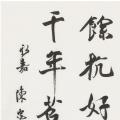 餘杭好
千年
永嘉陳忠